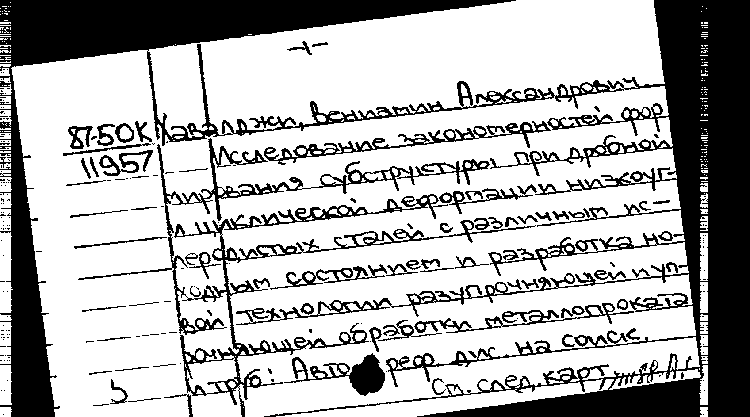 -1-
87-50К
11957
Хавалджи, Вениамин Александрович.
Исследование закономерностей фор
мирования субструктуры при дробной
и циклической деформации низкоуг-
леродистых сталей с различным ис-
ходным состоянием и разработка но-
вой технологии разупрочняющей и уп-
рочняющей обработки металлопроката
и труб: Автореф. дис. на соиск.
См. след. карт.